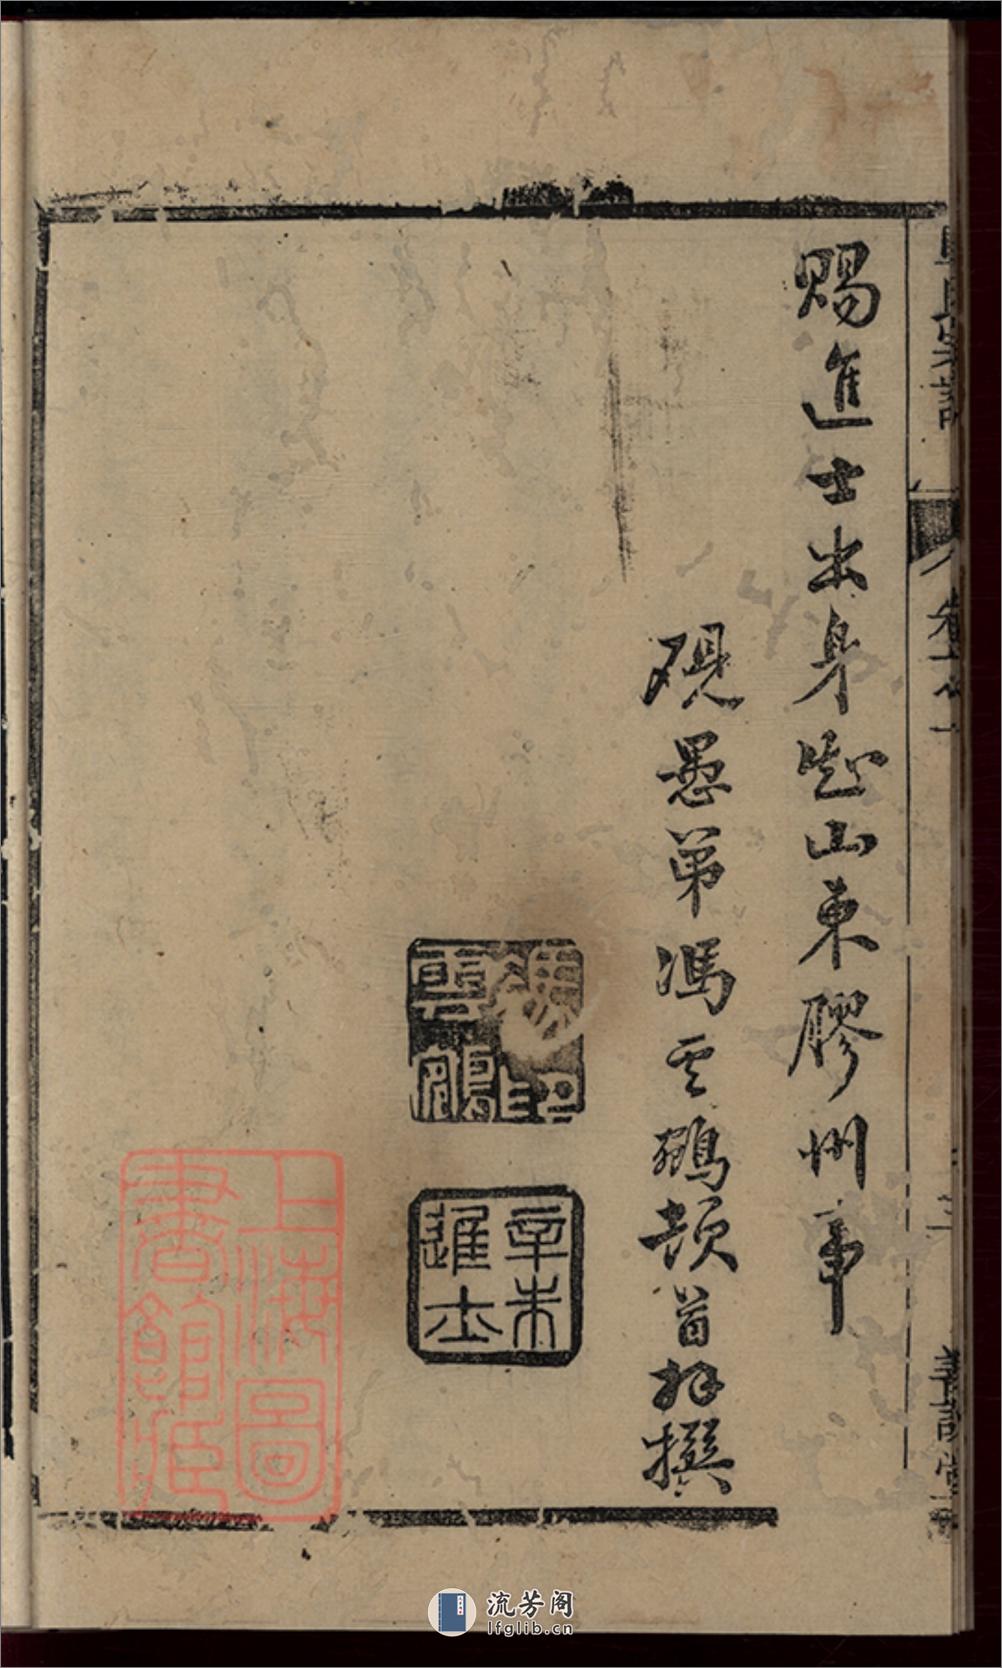 氏宗譜
賜進士出身山東膠州事
硯愚弟馮云鵷頓首拜撰
馮印
雲鵷
辛未
進士
上海圖
書館藏
流芳阁
lfglib.cn